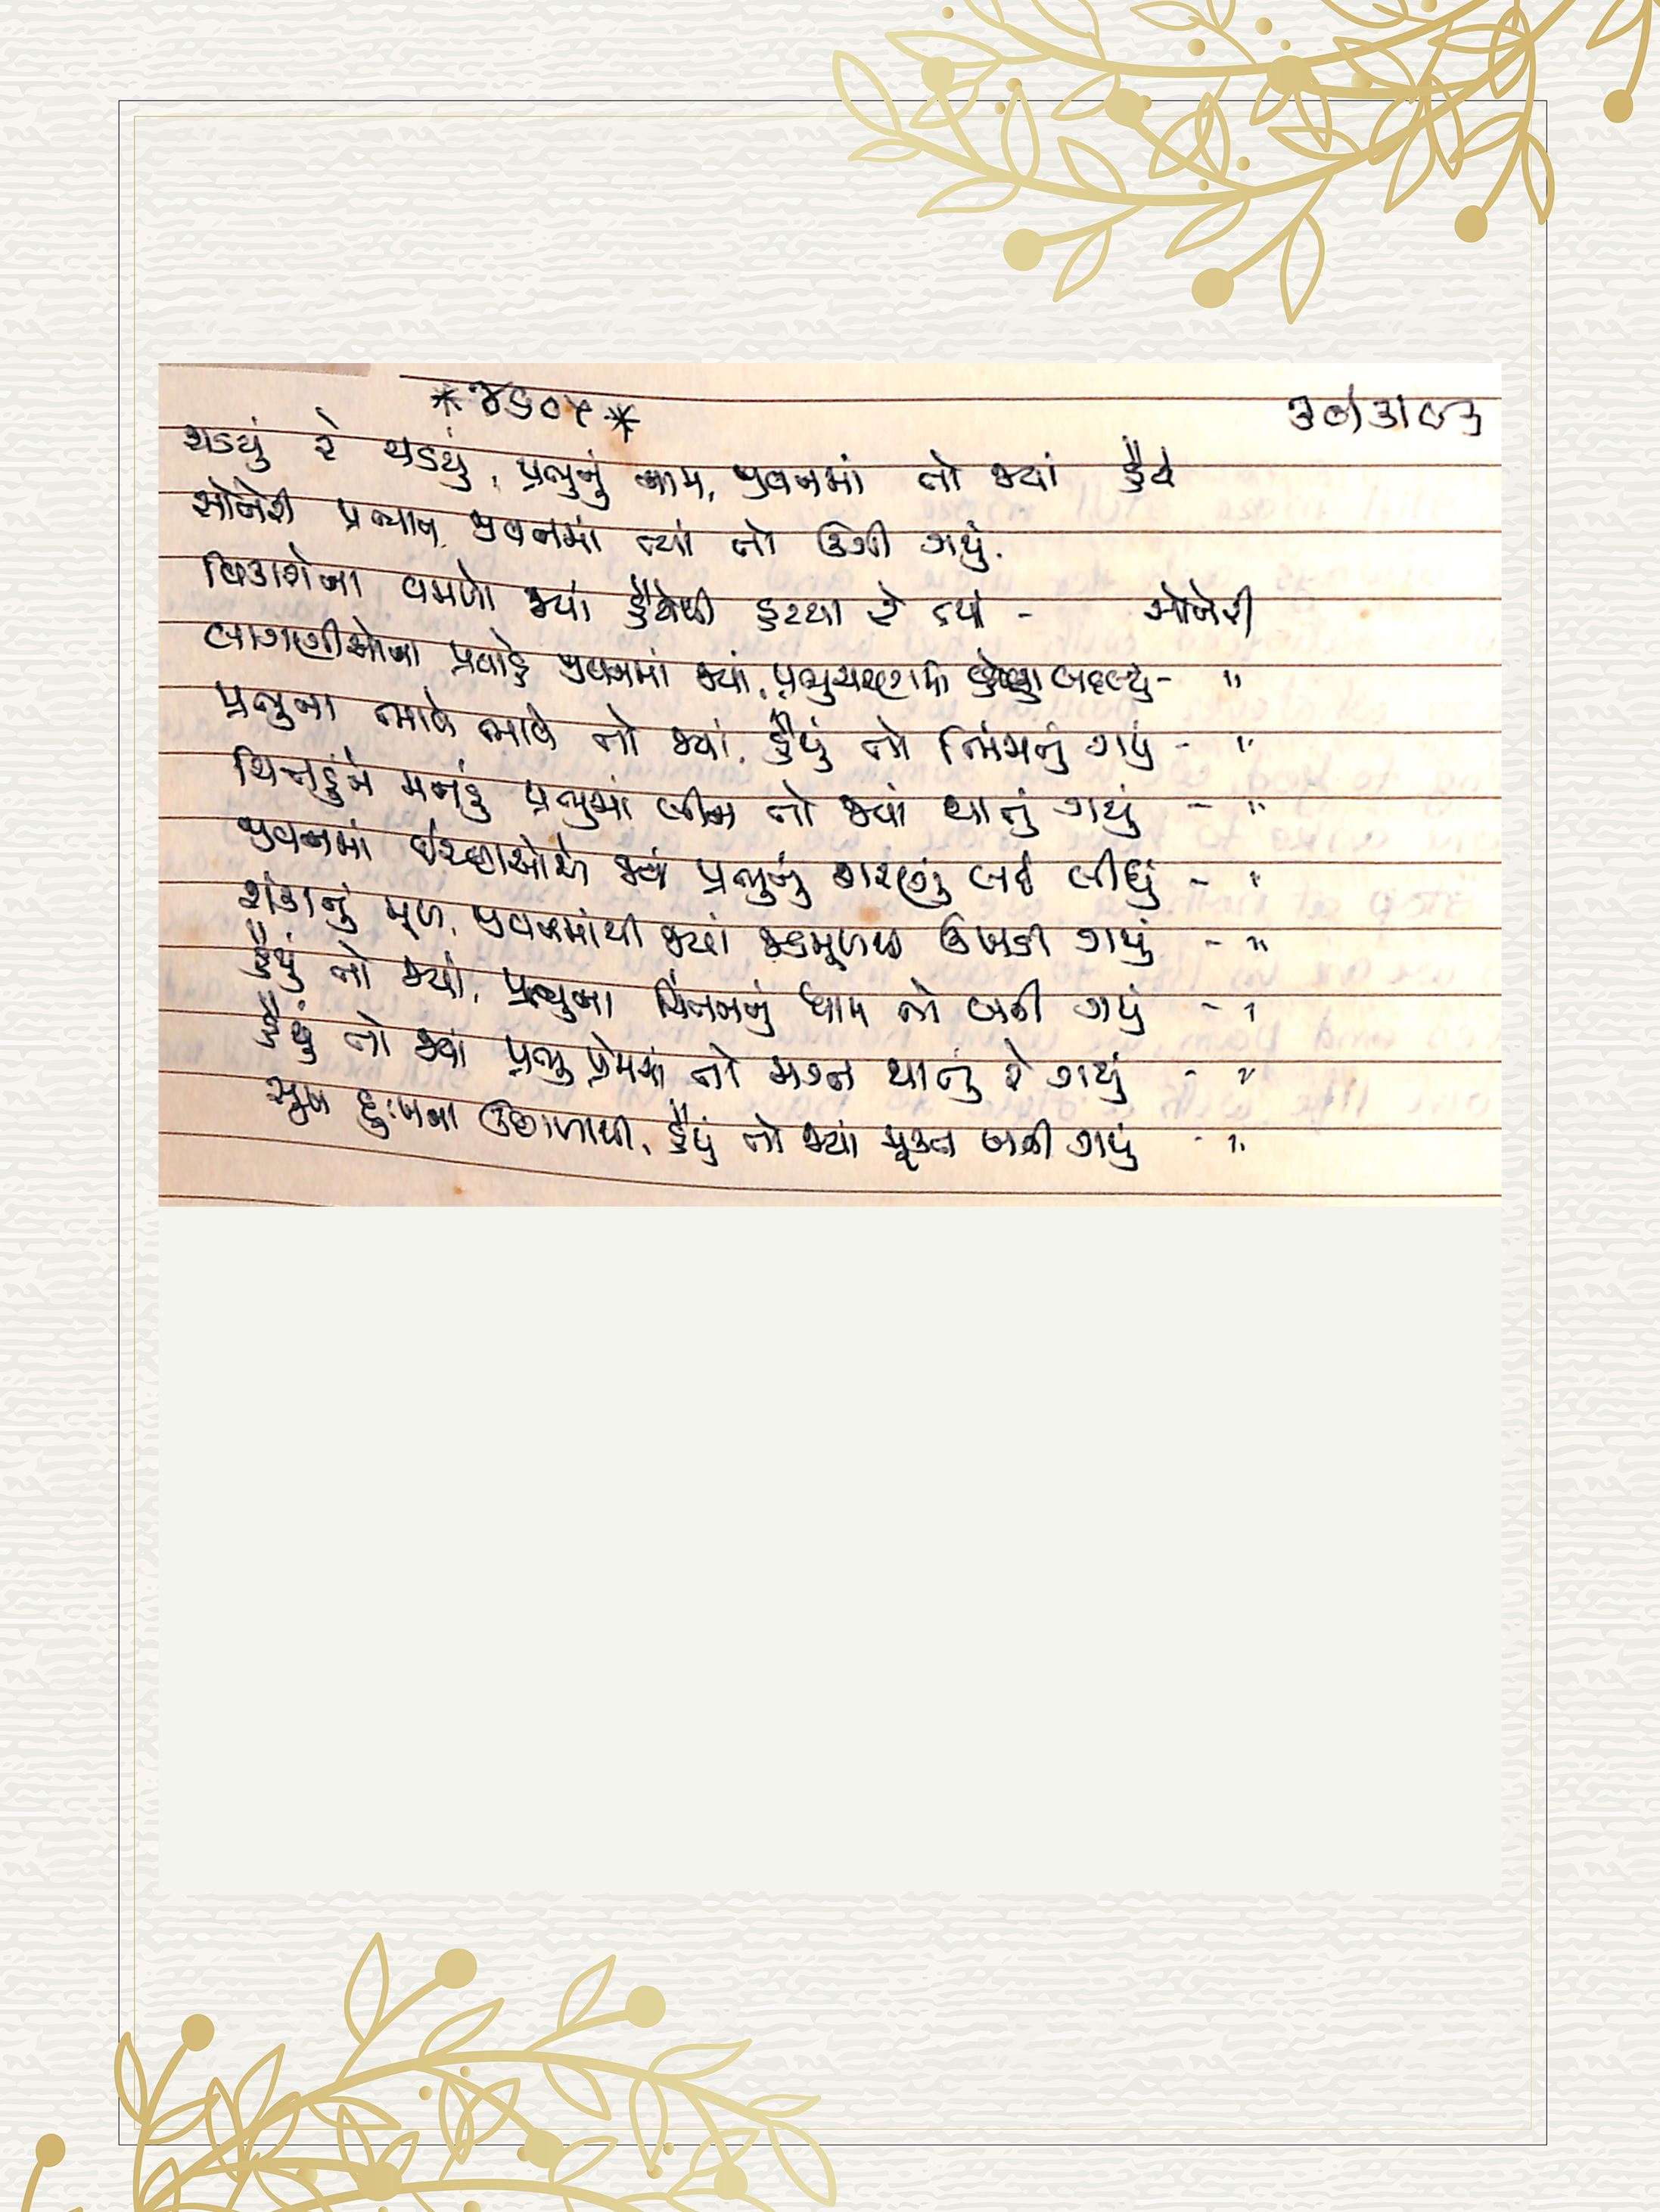 *૪૬૦૫*
૩૦/૩/૯૩
ચડયું રે ચડયું, પ્રભુનું નામ, જીવનમાં તો જ્યાં હૈયે
સોનેરી પ્રભાત જીવનમાં ત્યાં તો ઊગી ગયું.
વિકારોના વમળો જ્યાં હૈયેથી હટયા રે જ્યાં - સોનેરી
લાગણીઓના પ્રવાહે જીવનમાં જ્યાં, પ્રભુચરણમાં બદલ્યું - "
પ્રભુના ભાવે ભાવે તો જ્યાં, હૈયું તો ભિંજાતું ગયું - "
ચિત્તડું ને મનડું પ્રભુમાં લીન તો જ્યાં થાતું ગયું - "
જીવનમાં ઇચ્છાઓએ જ્યાં પ્રભુનું શરણું લઈ લીધું - "
શંકાનું મૂળ, જીવનમાંથી જ્યાં જડમૂળથી ઊખડી ગયું - "
હૈયું તો જ્યાં, પ્રભુના ચિંતનનું ધામ તો બની ગયું - "
હૈયું તો જ્યાં પ્રભુ પ્રેમમાં તો મગ્ન થાતું રે ગયું - "
સુખ દુઃખના ઉછાળાથી, હૈયું તો જ્યાં મુક્ત બની ગયું - "